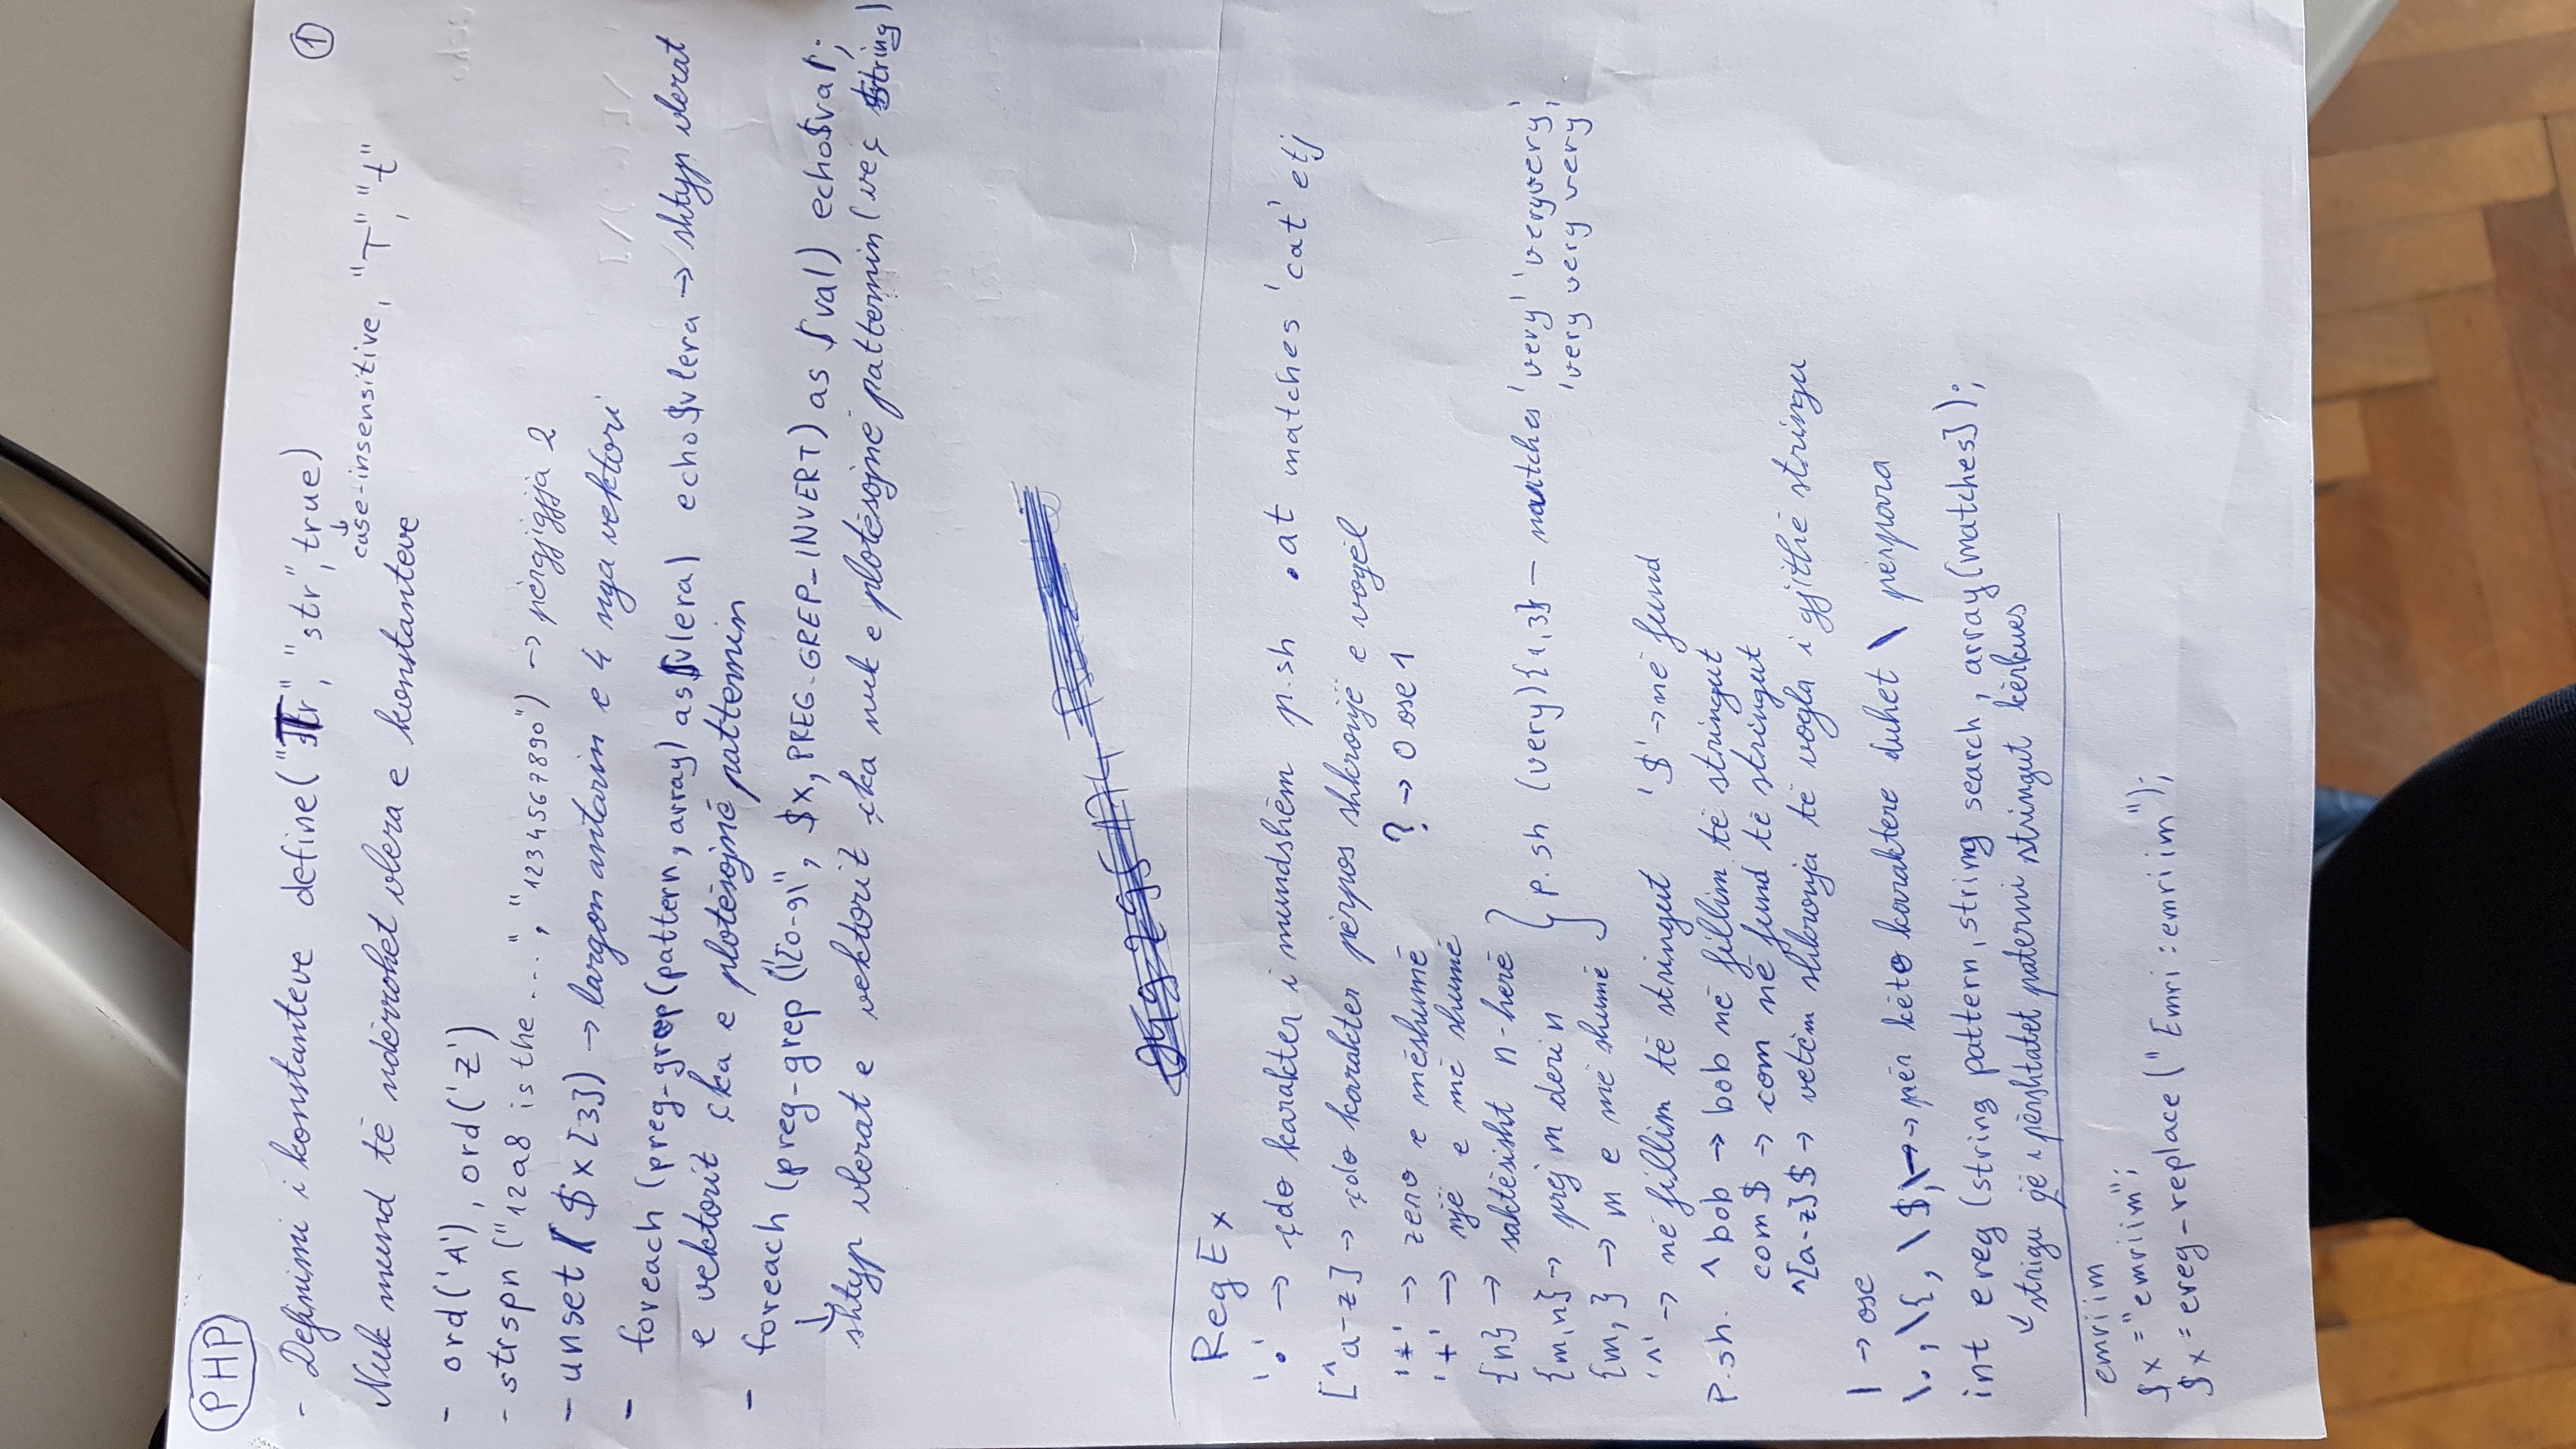 PHP
- Definimi i konstanteve define("Tr", "str", true)
1
case-insensitive, "T", "t"
Nuk mund të ndërrohet vlera e konstanteve
- ord('A'), ord('Z')
- strspn ("12a8 is the ...", "1234567890") → përgjigjja 2
- unset ($x[3]) → largon antarin e 4 nga vektori
- foreach (preg-grep(pattern, array) as $vlera) echo $vlera → shtyp vlerat
e vektorit çka e plotësojnë patternin
- foreach (preg-grep ("[0-9]", $x, PREG-GREP-INVERT) as $val) echo $val;
↓
shtyp vlerat e vektorit çka nuk e plotësojnë patternin (veç string)
RegEx
'.' → çdo karakter i mundshëm p.sh .at matches 'cat' etj
[^a-z] → çdo karakter përpos shkronjë e vogël
'*' → zero e mëshumë ? → 0 ose 1
'+' → një e më shumë
{n} → saktësisht n-herë
{m,n} → prej m deri n
p.sh (very){1,3} - matches 'very' 'veryvery',
'very very very'
{m, } → m e më shumë
'^' → në fillim të stringut '$' → në fund
P.sh. ^bob → bob në fillim të stringut
com$ → com në fund të stringut
^[a-z]$ → vetëm shkronja të vogla i gjithë stringu
| → ose
\., \{, \$, → për këto karaktere duhet \ përpara
int ereg (string pattern, string search, array[matches]);
↙ strigu që i përshtatet paterni stringut kërkues
emriim
$x = "emriim";
$x = ereg-replace ("Emri : emriim");